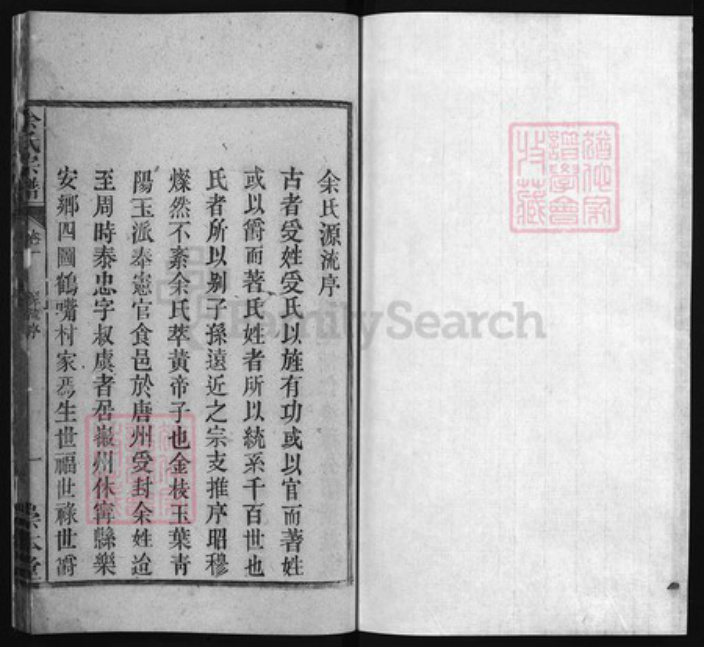 余氏源流序
古者受姓受氏以旌有功或以官而著姓
或以爵而著氏姓者所以統系千百世也
氏者所以别子孫遠近之宗支推序昭穆
燦然不紊余氏萃黃帝子也金枝玉葉青
陽玉派奉憲官食邑於唐州受封余姓迨
至周時泰忠字叔虞者居嶽州休寧縣樂
安鄉四圖鶴嘴村家焉生世福世祿世爵
余氏宗譜
卷一
源流序
一
FamilySearch